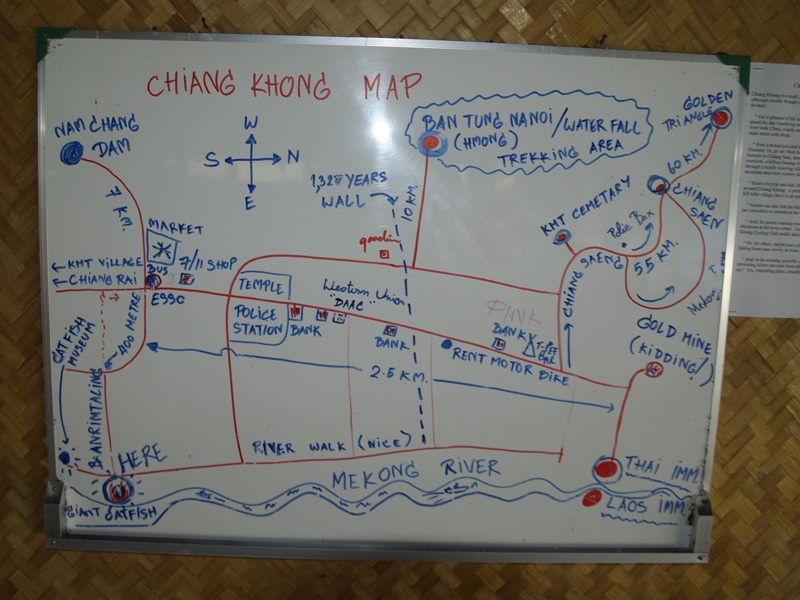 CHIANG KHONG MAP
NAM CHANG
DAM
W
S
N
E
BAN TUNG NANOI/WATER FALL
(HMONG)
TREKKING AREA
GOLDEN
TRIANGLE
60 KM.
7 KM.
1,327 YEARS
WALL
10 KM.
KMT CEMETARY
CHIANG
SAEN
Police Box
55 KM.
MARKET
KMT VILLAGE
CHIANG RAI
BUS
7/11 SHOP
ESSO
TEMPLE
POLICE
STATION
Western Union
BAAC
BANK
BANK
PINK
BANK
RENT MOTOR BIKE
CHIANG SAENG
GOLD MINE
(KIDDING!)
CATFISH
MUSEUM
400 METRE
BANRIMTALING
2.5 KM.
HERE
RIVER WALK (NICE)
MEKONG RIVER
GIANT CATFISH
THAI IMM.
LAOS IMM.